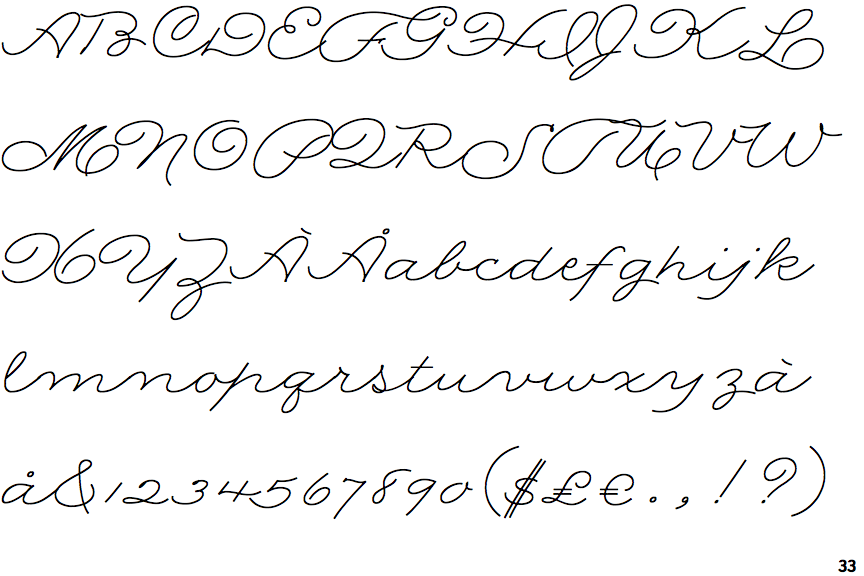 ABCDEFGHIJKL
MNOPQRSTUVW
XYZÀÅabcdefghijk
lmnopqrstuvwxyzà
å&1234567890($£€.,!?)
33